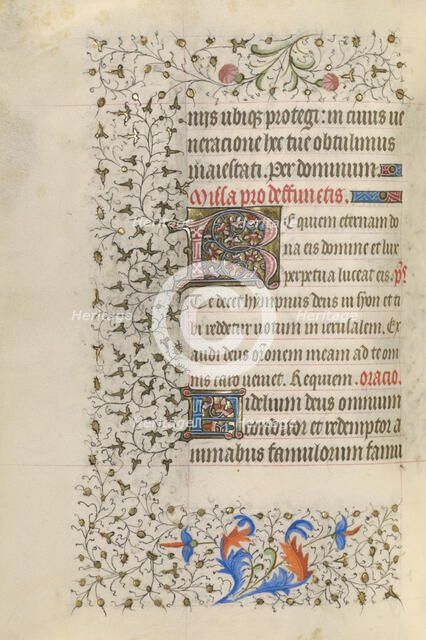 mis ubiq; protegi: in cuius ue
neracione hec tue obtulimus
maiestati. Per dominum.
Missa pro deffunctis.
Requiem eternam do
na eis domine et lux
perpetua luceat eis. ps
Te decet hympnus deus in syon et ti
bi reddetur uotum in ierusalem. Ex
audi deus oronem meam ad te om
nis caro ueniet. Requiem. oracio.
Fidelium deus omnium
conditor et redemptor a
nimabus famulorum famu
Heritage Heritage Heritage
Images Images Images